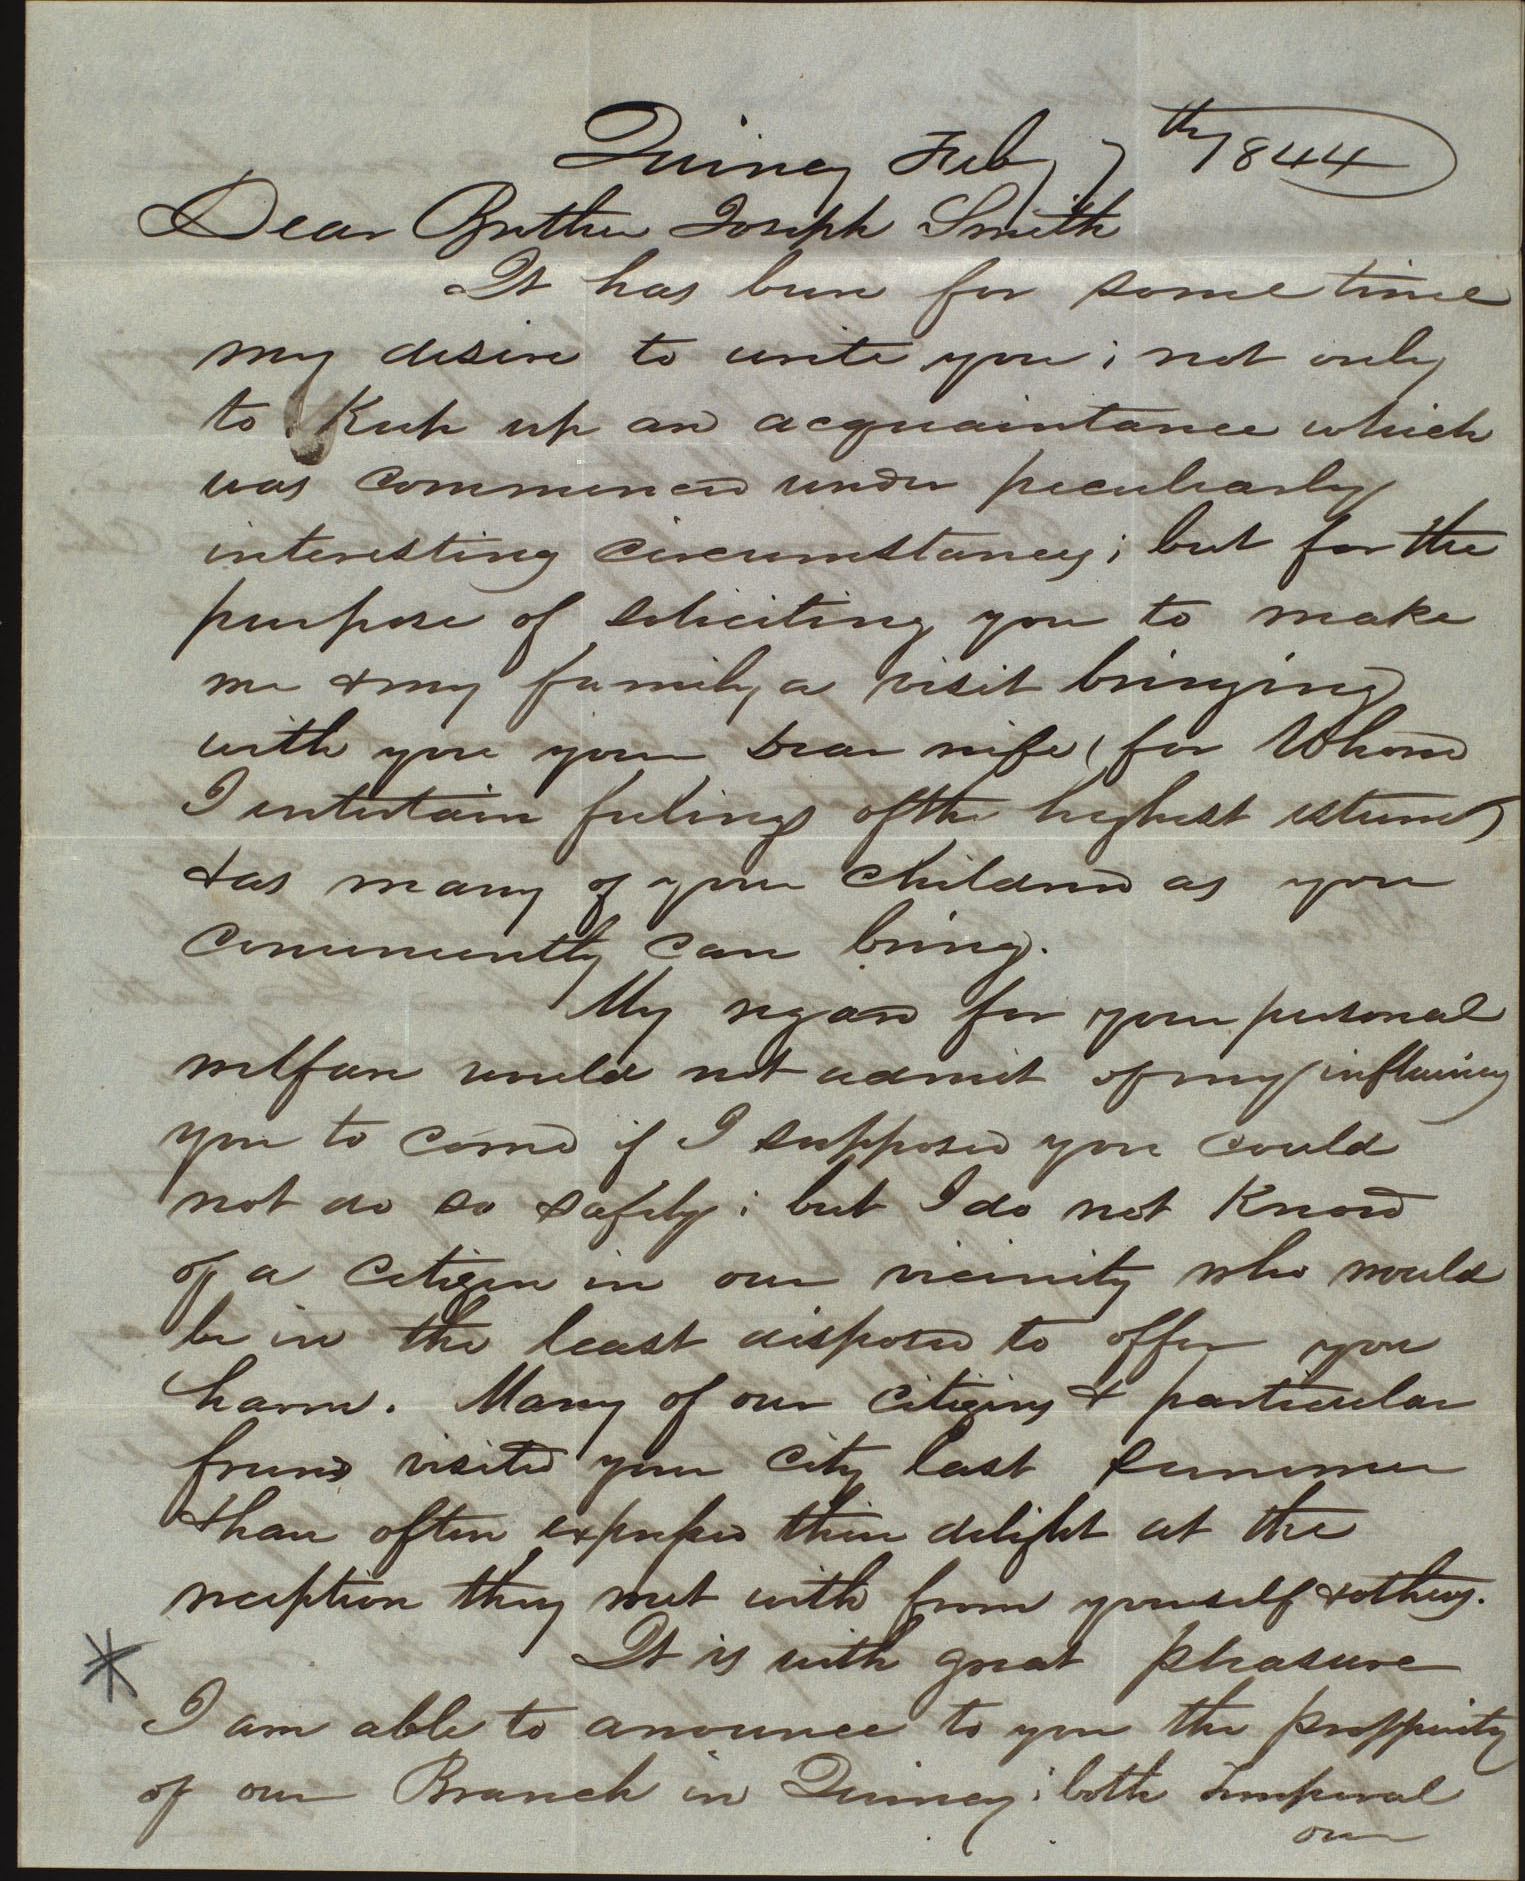 Quincy Feby 7th 1844
Dear Brother Joseph Smith
It has been for some time
my desire to write you; not only
to Keep up an acquaintance which
was commenced under peculiarly
interesting circumstances; but for the
purpose of soliciting you to make
me & my family a visit bringing
with you your dear wife, for Whom
I entertain feelings of the highest esteem,
& as many of your children as you
conveniently can bring.
My regard for your personal
welfare would not admit of my influencing
you to come if I supposed you could
not do so safely; but I do not Know
of a citizen in our vicinity who would
be in the least disposed to offer you
harm. Many of our citizens & particular
friends visited your city last summer
& have often expressed their delight at the
reception they met with from yourself & others.
It is with great pleasure
I am able to anounce to you the prosperity
of our Branch in Quincy; both Temporal
our